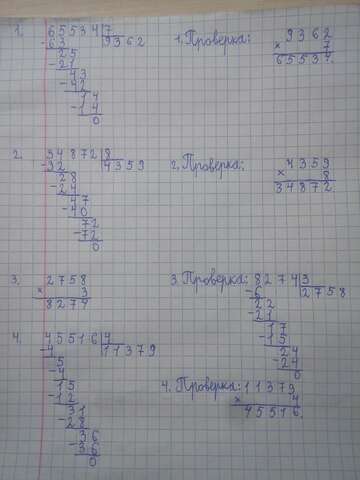 1. 65534|7 1. Проверка: 9362
-63 9362 × 7
25 65534.
-21
43
-42
14
-14
0
2. 34872|8 2. Проверка: 4359
-32 4359 × 8
28 34872.
-24
47
-40
72
-72
0
3. 2758 3. Проверка: 82743
× 3 -6 2758
8274 22
-21
17
-15
24
-24
0
4. 45516|4
-4 11379
5
-4
15
-12
31
-28
36
-36
0
4. Проверка: 11379
× 4
45516.